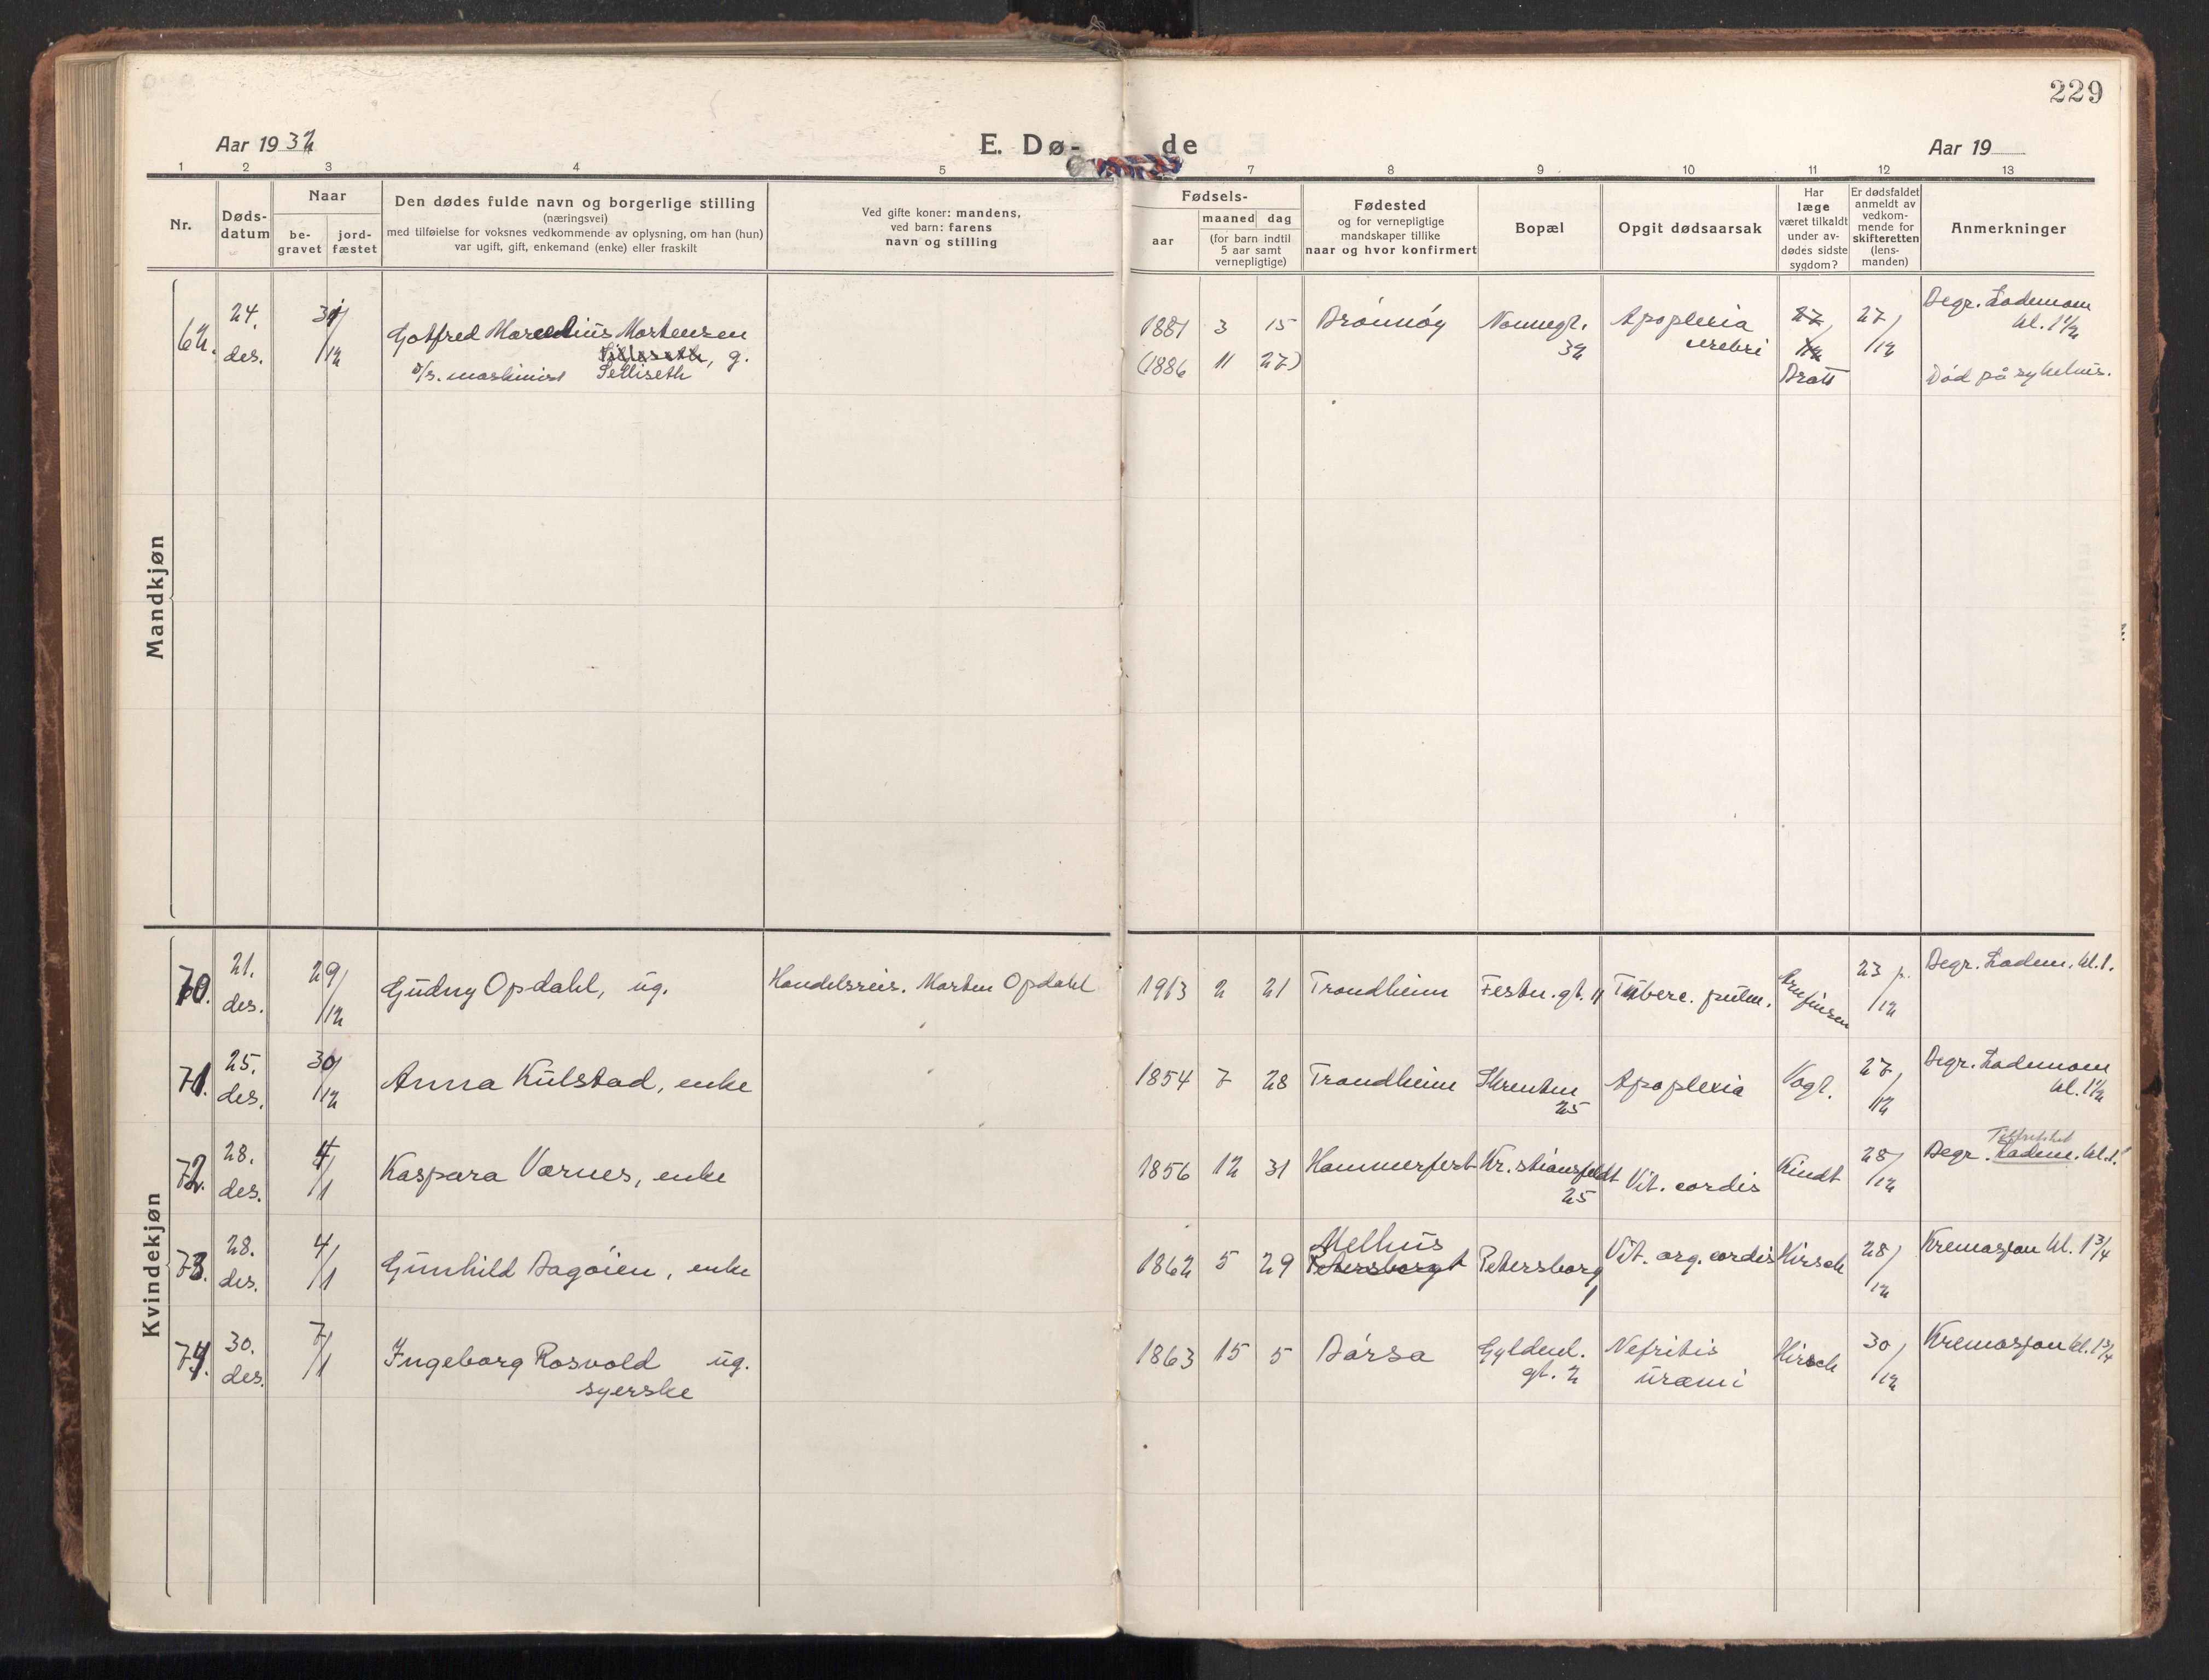 229
Aar 1932
E. Dø-
de
Aar 19
1 2 3 4 5 7 8 9 10 11 12 13
Nr.
Døds-
datum
Naar
be-
gravet
jord-
fæstet
Den dødes fulde navn og borgerlige stilling
(næringsvei)
med tilføielse for voksnes vedkommende av oplysning, om han (hun)
var ugift, gift, enkemand (enke) eller fraskilt
Ved gifte koner: mandens,
ved barn: farens
navn og stilling
Fødsels-
aar
maaned dag
(for barn indtil
5 aar samt
vernepligtige)
Fødested
og for vernepligtige
mandskaper tillike
naar og hvor konfirmert
Bopæl
Opgit dødsaarsak
Har
læge
været tilkaldt
under av-
dødes sidste
sygdom?
Er dødsfaldet
anmeldt av
vedkom-
mende for
skifteretten
(lens-
manden)
Anmerkninger
Mandkjøn
62. 24. des. 31/12 Gotfred Marcelius Mortensen
Selliseth, g.
d/s. maskinist
1881 3 15 Brønnøy Nonnegt. 32 Apoplexia cerebri Bratt 27/12 Begr. Lademoen kl. 1½
(1886 11 27) Død på sykehus.
Kvindekjøn
70. 21. des. 29/12 Gudny Opdahl, ug. Handelsreis. Morten Opdahl 1913 2 21 Trondheim Festn.gt. 11 Tuberc. pulm. Arnfinsen 23/12 Begr. Ladem. kl. 1.
71. 25. des. 30/12 Anna Kulstad, enke 1854 7 28 Trondheim Skrenten 25 Apoplexia Vogt. 27/12 Begr. Lademoen kl. 1½
72. 28. des. 4/1 Kaspara Varnes, enke 1856 12 31 Hammerfest Kr.stiansfeldt 25 Vit. cordis Kindt 28/12 Begr. Ladem. kl. 1.
73. 28. des. 4/1 Gunhild Bagøien, enke 1862 5 29 Melhus Petersborg 1 Vit. org. cordis Hirsch 28/12 Kremasjon kl. 1¾
Petersborg
74. 30. des. 7/1 Ingeborg Rosvold ug.
syerske
1863 15 5 Børsa Gyldenl. gt. 2 Nefritis uræmi Hirsch 30/12 Kremasjon kl. 1¾